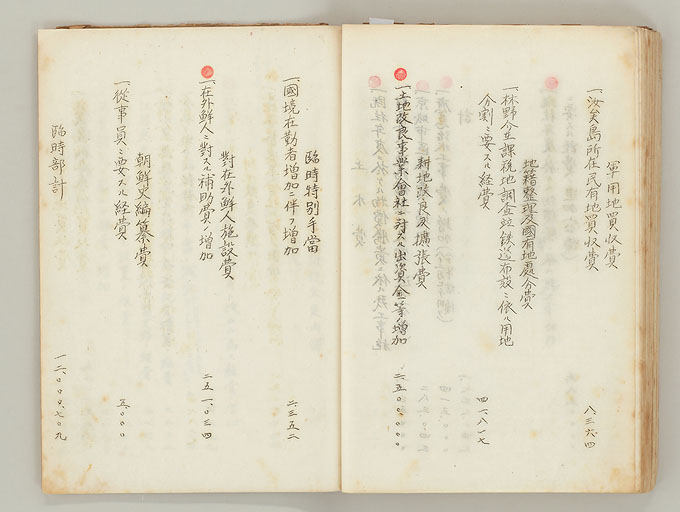 軍用地買收費
一、汝矣島所在民有地買收費 八三六四
地籍整理及國有地處分費
一、林野公立課稅地調査竝鐵道布設ニ依ル用地
分割ニ要スル經費 四六八一七
耕地改良及擴張費
一、土地改良事業會社ニ對スル出資金等增加 二五〇、〇〇〇
臨時特別手當
一、國境在勤者增加ニ伴フ增加 二、三五二
對在外鮮人施設費
一、在外鮮人ニ對スル補助費ノ增加 二五一、〇三四
朝鮮史編纂費
一、從事員ニ要スル經費 五、〇〇〇
臨時部計 一二、〇〇〇、七〇九